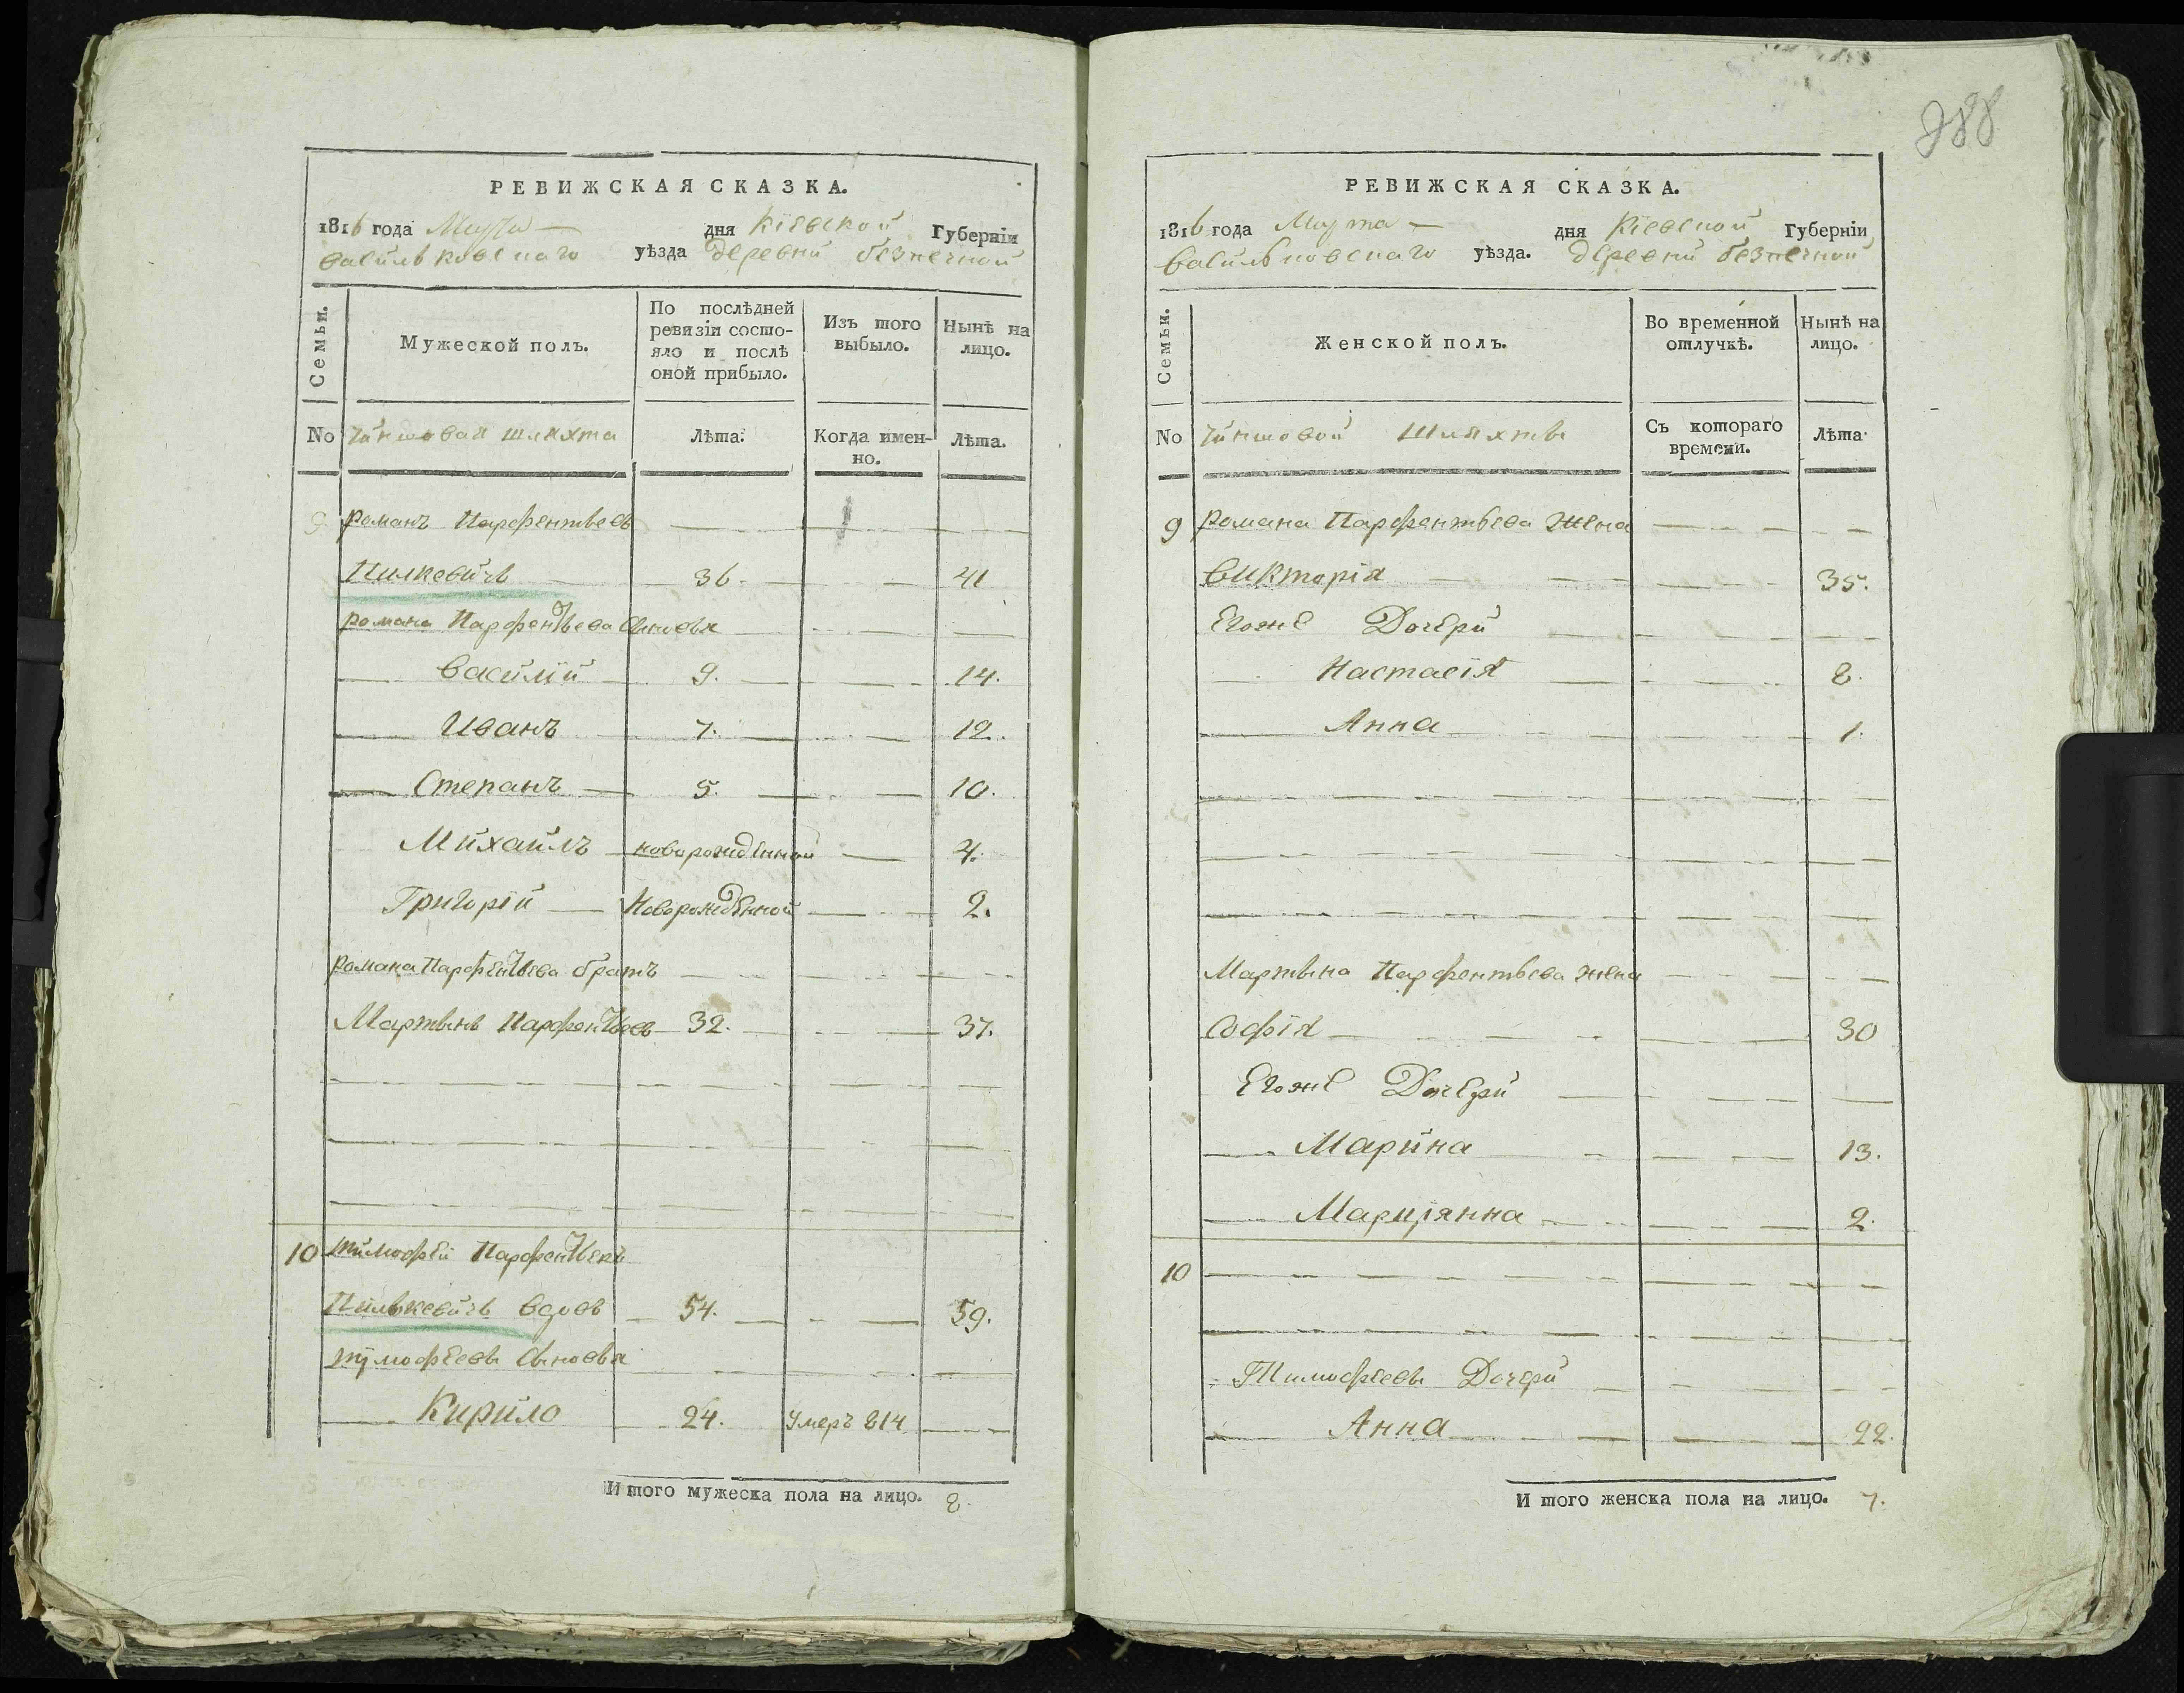 РЕВИЖСКАЯ СКАЗКА.
1816 года Марта дня Кіевской Губерніи
Васильковскаго уѣзда деревни безпечной
Семьи.
Мужеской полъ.
По послѣдней ревизіи состояло и послѣ оной прибыло.
Изъ того выбыло.
Нынѣ на лицо.
No Чиншовая шляхта Лѣта. Когда именно. Лѣта.
9 Романъ Парфентьевъ
Пилкевичъ 36. 41
Романа Парфентьева Сыновья
Василій 9. 14.
Иванъ 7. 12.
Степанъ 5. 10.
Михаилъ новорожденной 4.
Григорій Новорожденной 2.
Романа Парфентьева братъ
Мартынъ Парфентьевъ 32. 37.
10 Тимофей Парфентьевъ
Пилькевичъ вдовъ 54. 59.
Тимофеевы Сыновья
Кирило 24. Умеръ 814
И того мужеска пола на лицо. 8.
288
РЕВИЖСКАЯ СКАЗКА.
1816 года Марта дня Кіевской Губерніи
Васильковскаго уѣзда. деревни безпечной
Семьи.
Женской полъ.
Во временной отлучкѣ.
Нынѣ на лицо.
No Чиншовой Шляхты Съ котораго времени. Лѣта
9 Романа Парфентьева Жена
Викторія 35.
Егоже Дочери
Настасія 8.
Анна 1.
Мартына Парфентьева жена
Софія 30
Егоже Дочери
Марина 13.
Марціянна 2.
10
Тимофеевы Дочери
Анна 22.
И того женска пола на лицо. 7.